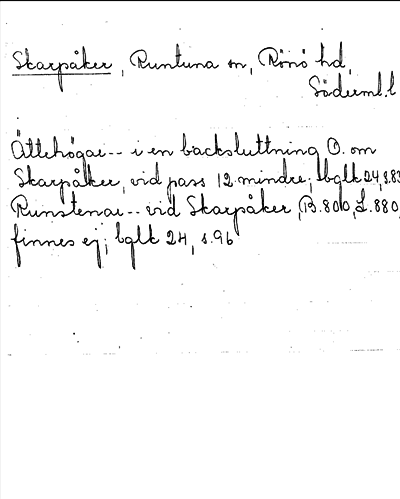 Skarpåker, Runtuna sn, Rönö hd,
Söderml. l
Ättehögar -- i en backsluttning O. om
Skarpåker, vid pass 12 mindre; bglk 24, s.83
Runstenar -- vid Skarpåker, B. 800, L. 880,
finnes ej; bglk 24, s.96